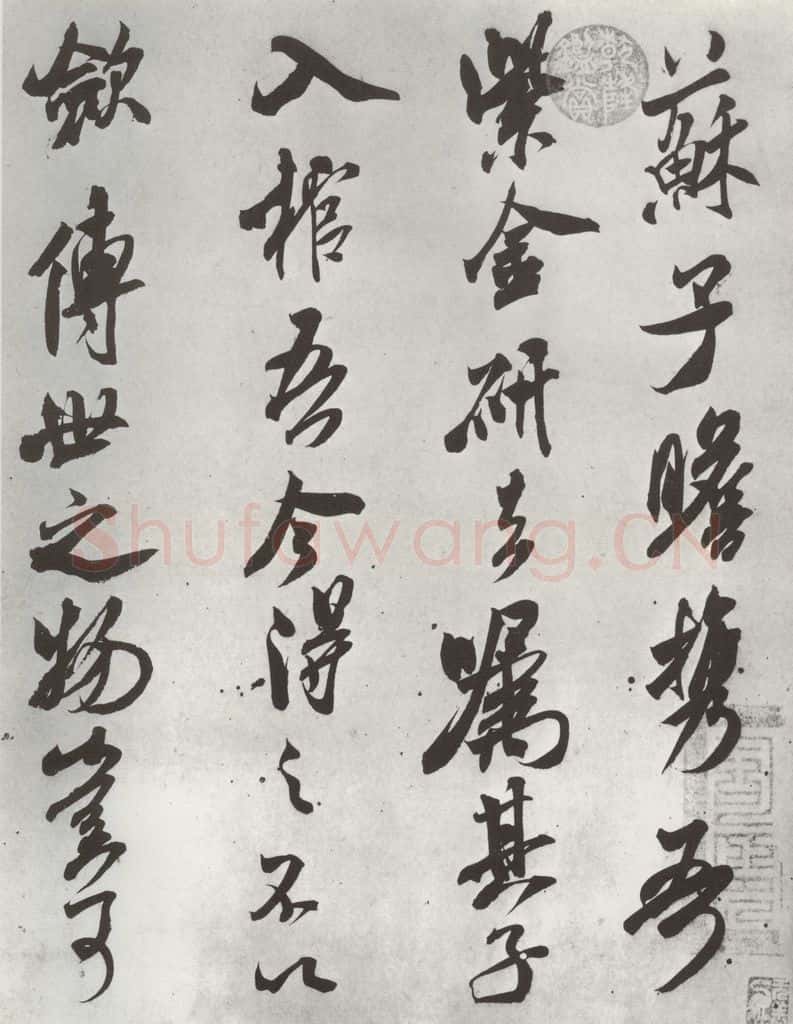 蘇子瞻攜吾
紫金研去嘱其子
入棺吾今得之不以
斂傳世之物豈可
Shufawang.CN